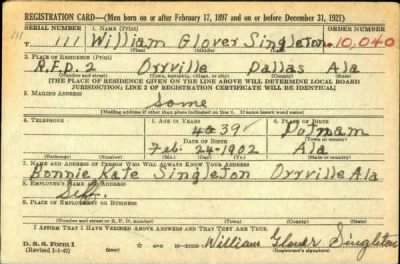 REGISTRATION CARD—(Men born on or after February 17, 1897 and on or before December 31, 1921)
SERIAL NUMBER 1. NAME (Print) ORDER NUMBER
111 111 William Glover Singleton 10,040
(First) (Middle) (Last)
2. PLACE OF RESIDENCE (Print)
R.F.D. 2 Orrville Dallas Ala
(Number and street) (Town, township, village, or city) (County) (State)
[THE PLACE OF RESIDENCE GIVEN ON THE LINE ABOVE WILL DETERMINE LOCAL BOARD
JURISDICTION; LINE 2 OF REGISTRATION CERTIFICATE WILL BE IDENTICAL]
3. MAILING ADDRESS
Some
[Mailing address if other than place indicated on line 2. If same insert word same]
4. TELEPHONE 5. AGE IN YEARS 6. PLACE OF BIRTH
40 39 Putnam
DATE OF BIRTH (Town or county)
Feb. 24-1902 Ala
(Mo.) (Day) (Yr.) (State or country)
7. NAME AND ADDRESS OF PERSON WHO WILL ALWAYS KNOW YOUR ADDRESS
Bonnie Kate Singleton Orrville Ala
8. EMPLOYER'S NAME AND ADDRESS
Self.
9. PLACE OF EMPLOYMENT OR BUSINESS
(Number and street or R. F. D. number) (Town) (County) (State)
I AFFIRM THAT I HAVE VERIFIED ABOVE ANSWERS AND THAT THEY ARE TRUE.
D. S. S. Form 1
(Revised 1-1-42) (over)
William Glover Singleton
(Registrant's signature)